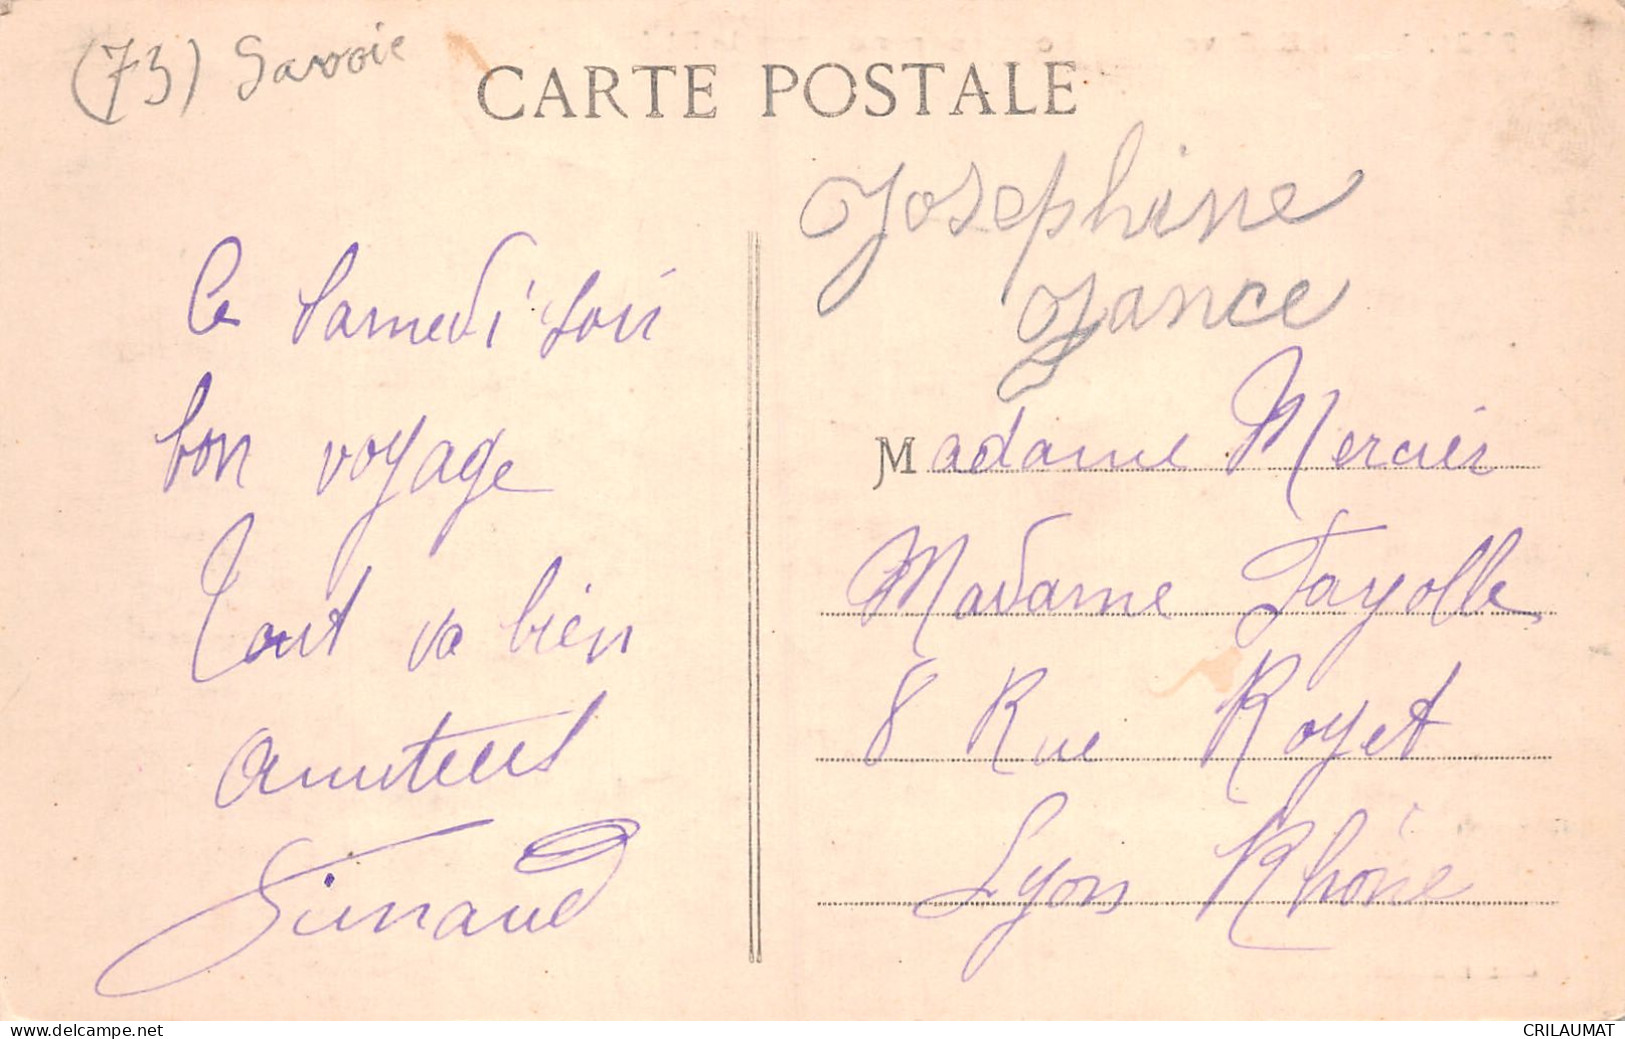 (73) Savoie
CARTE POSTALE
Josephine
Jance
Ce Samedi soir
bon voyage
Tout va bien
Madame Mercier
Madame Fayolle
8 Rue Royet
Lyon Rhône
www.delcampe.net
CRILAUMAT